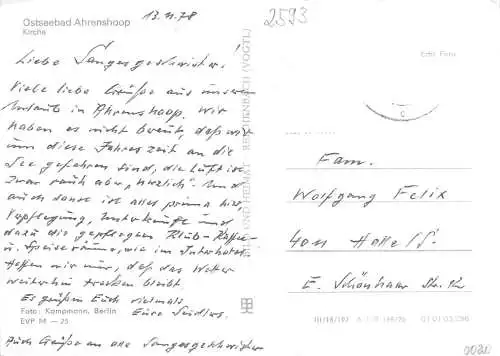 Ostseebad Ahrenshoop
Kirche
13.11.78
Liebe Sangesgeschwister!
Viele liebe Grüße aus unserem
Urlaub in Ahrenshoop. Wir
haben es nicht bereut, daß wir
um diese Jahreszeit an die
See gefahren sind, die Luft ist
zwar rauh aber „herzlich“. Und
auch sonst ist alles prima hier,
Verpflegung, Unterkünfte und
dazu die gepflegten Klub-Kaffee-
u. Speiseräume, wie im Interhotel.
Hoffen wir nur, daß das Wetter
weiterhin trocken bleibt.
Es grüßen Euch vielmals
Eure
Foto: Kampmann, Berlin
EVP M –.25
Auch Grüße an alle Sangesgeschwister
REICHENBACH (VOGTL)
2593
Echt Foto
Fam.
Wolfgang Felix
4011 Halle/S.
E. Schönhaar Str.
01 01 03 296